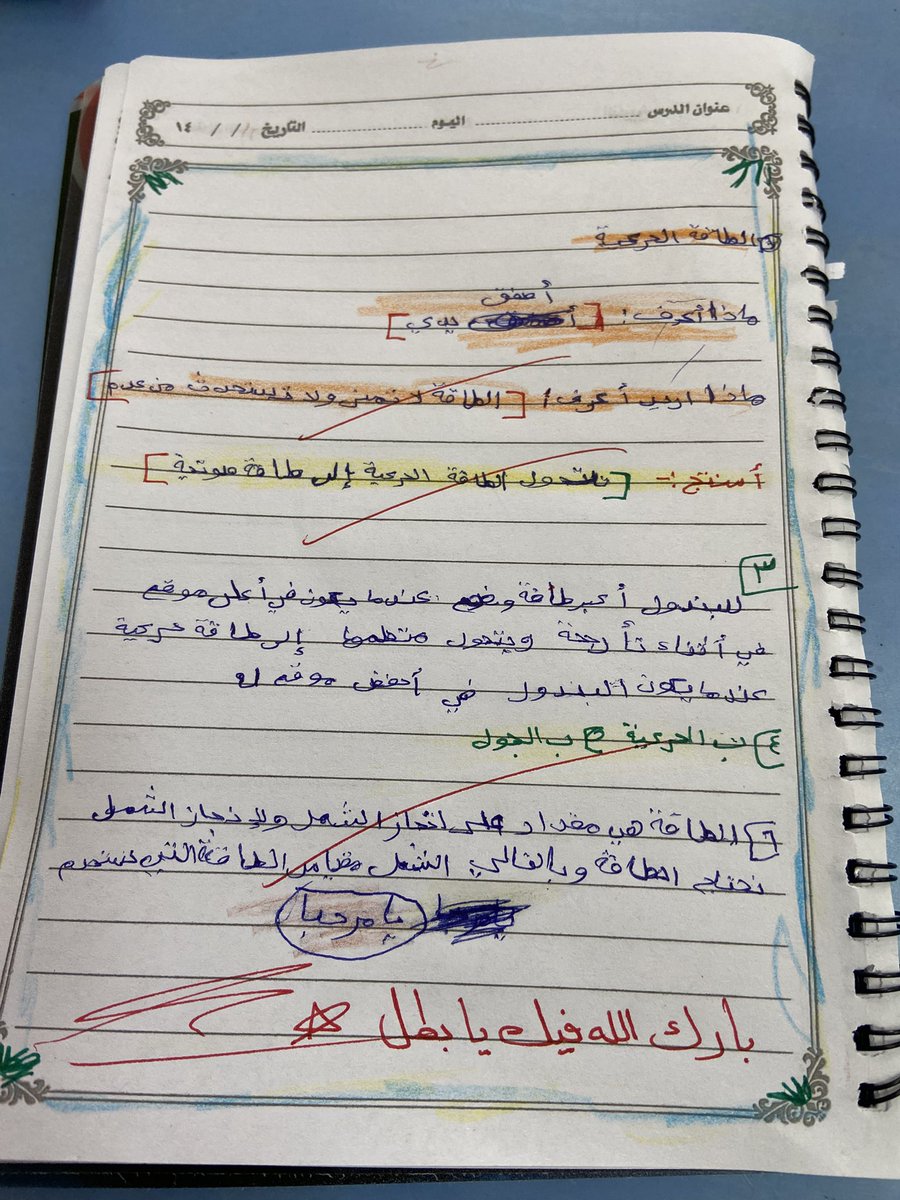 عنوان الدرس ........ اليوم ........ التاريخ / / ١٤
الطاقة الحركية
أصفق
ماذا أعرف: [ بيدي ]
ماذا اريد أعرف: [ الطاقة لا تفنى ولا تستحدث من عدم ]
أستنتج :- [ تتحول الطاقة الحركية إلى طاقة صوتية ]
٣
للبندول أكبر طاقة وضع عندما يكون في أعلى موقع
في أثناء تأرجحة ويتحول منظمها إلى طاقة حركية
عندما يكون البندول في أخفض موقع له
٤) ب الحركية ج ب الجول
٦) الطاقة هي مقدار على انجاز الشغل ولإنجاز الشغل
نحتاج الطاقة وبالتالي الشغل مقياس الطاقة التي تستخدم
يا مرحبا
بارك الله فيك يا بطل